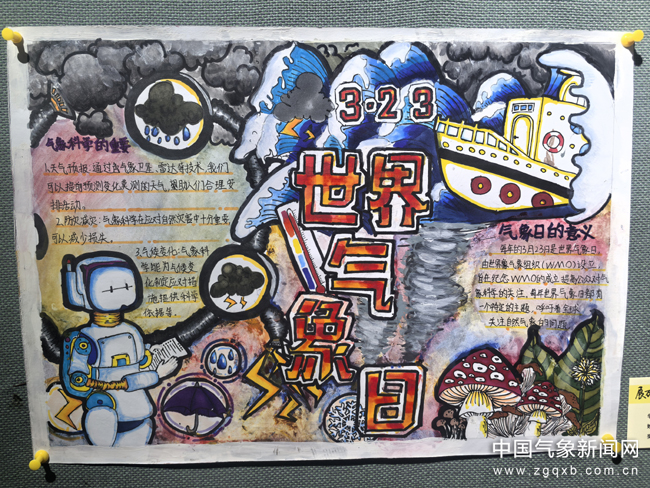 3·23
世界
气
象
日
气象科学的重要
1.天气预报：通过气象卫星、雷达等技术，我们
可以提前预测变化莫测的天气，帮助人们合理安
排活动。
2.防灾减灾：气象科学在应对自然灾害中十分重要
可以减少损失。
3.气候变化：气象科
学能为气候变
化和应对措
施提供科学
依据等。
气象日的意义
每年的3月23日是世界气象日，
由世界气象组织（WMO）设立，
旨在纪念WMO的成立，提高公众对气
象科学的关注，每年世界气象日都有
一个特定的主题，呼吁着全球
关注自然气象的问题
中国气象新闻网
www.zgqxb.com.cn